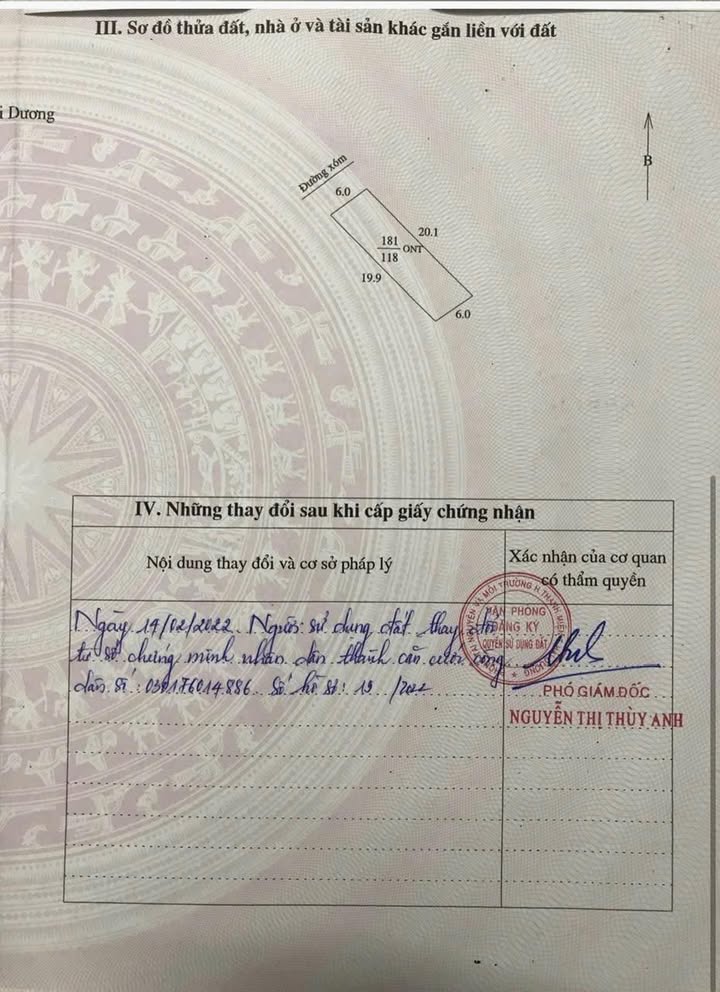 III. Sơ đồ thửa đất, nhà ở và tài sản khác gắn liền với đất
i Dương
B
Đường xóm
6.0
20.1
181
118
ONT
19.9
6.0
IV. Những thay đổi sau khi cấp giấy chứng nhận
Nội dung thay đổi và cơ sở pháp lý
Xác nhận của cơ quan
có thẩm quyền
Ngày 14/02/2022. Người sử dụng đất thay đổi
từ số chứng minh nhân dân thành căn cước công
dân số: 030176014886. Số hồ sơ: 19 /2022
VĂN PHÒNG
ĐĂNG KÝ
QUYỀN SỬ DỤNG ĐẤT
PHÓ GIÁM ĐỐC
NGUYỄN THỊ THÙY ANH